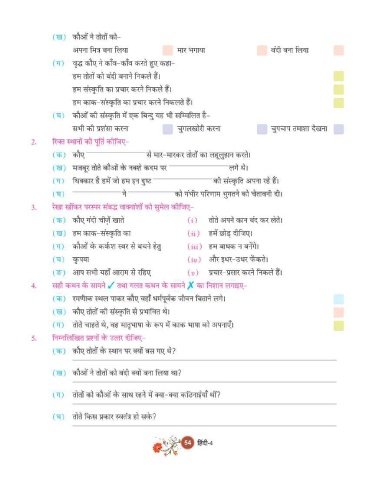 (ख) कौओं ने तोतों को-
अपना मित्र बना लिया मार भगाया बंदी बना लिया
(ग) वृद्ध कौए ने काँव-काँव करते हुए कहा-
हम तोतों को बंदी बनाने निकले हैं।
हम संस्कृति का प्रचार करने निकले हैं।
हम काक-संस्कृति का प्रचार करने निकलते हैं।
(घ) कौओं की संस्कृति में एक बिन्दु यह भी सम्मिलित है-
सभी की प्रशंसा करना चुगलखोरी करना चुपचाप तमाशा देखना
2. रिक्त स्थानों की पूर्ति कीजिए-
(क) कौए से मार-मारकर तोतों का लहूलुहान करते।
(ख) मजबूर तोते कौओं के नक्शे कदम पर लगे थे।
(ग) धिक्कार है हमें जो हम इन दुष्ट की संस्कृति अपना रहे हैं।
(घ) ने को गंभीर परिणाम भुगतने को चेतावनी दी।
3. रेखा खींचकर परस्पर संबद्ध वाक्यांशों को सुमेल कीजिए-
(क) कौए गंदी चीज़ें खाते (i) तोते अपने कान बंद कर लेते।
(ख) हम काक-संस्कृति का (ii) हमें छोड़ दीजिए।
(ग) कौओं के कर्कश स्वर से बचने हेतु (iii) हम बाधक न बनेंगे।
(घ) कृपया (iv) और इधर-उधर फेंकते।
(ङ) आप सभी यहाँ आराम से रहिए (v) प्रचार-प्रसार करने निकले हैं।
4. सही कथन के सामने ✓ तथा गलत कथन के सामने ✗ का निशान लगाइए-
(क) रमणीक स्थल पाकर कौए वहाँ धर्मपूर्वक जीवन बिताने लगे।
(ख) कौए तोतों की संस्कृति से प्रभावित थे।
(ग) तोते चाहते थे, वह मातृभाषा के रूप में काक भाषा को अपनाएँ।
5. निम्नलिखित प्रश्नों के उत्तर दीजिए-
(क) कौए तोतों के स्थान पर क्यों बस गए थे?
(ख) कौओं ने तोतों को बंदी क्यों बना लिया था?
(ग) तोतों को कौओं के साथ रहने में क्या-क्या कठिनाइयाँ थीं?
(घ) तोते किस प्रकार स्वतंत्र हो सके?
54 हिंदी-4